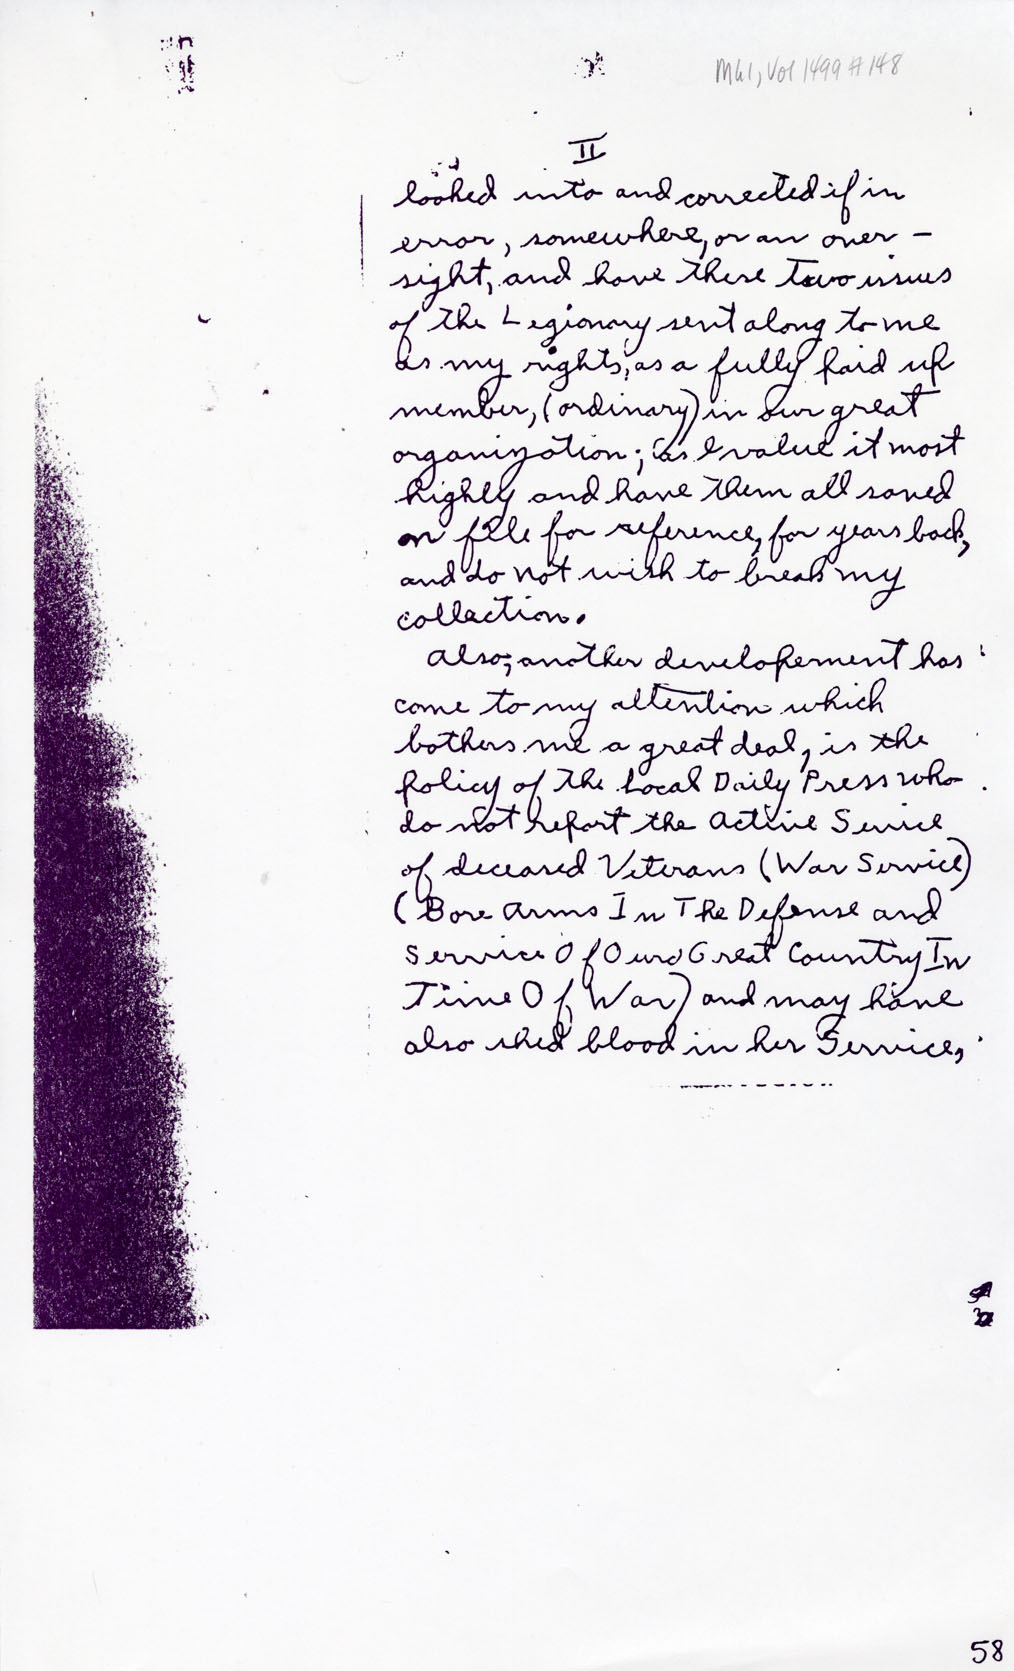 MG1, Vol 1499 #148
II
looked into and corrected if in
error, somewhere, or an over-
sight, and have these two issues
of the Legionary sent along to me
as my rights, as a fully paid up
member, (ordinary) in our great
organization; as I value it most
highly and have them all saved
on file for reference, for years back,
and do not wish to break my
collection.
Also; another developement has
come to my attention which
bothers me a great deal, is the
policy of the Local Daily Press who
do not report the Active Service
of deceased Veterans (War Service)
(Bore Arms In The Defense and
Service Of Our Great Country In
Time Of War) and may have
also shed blood in her Service,
58